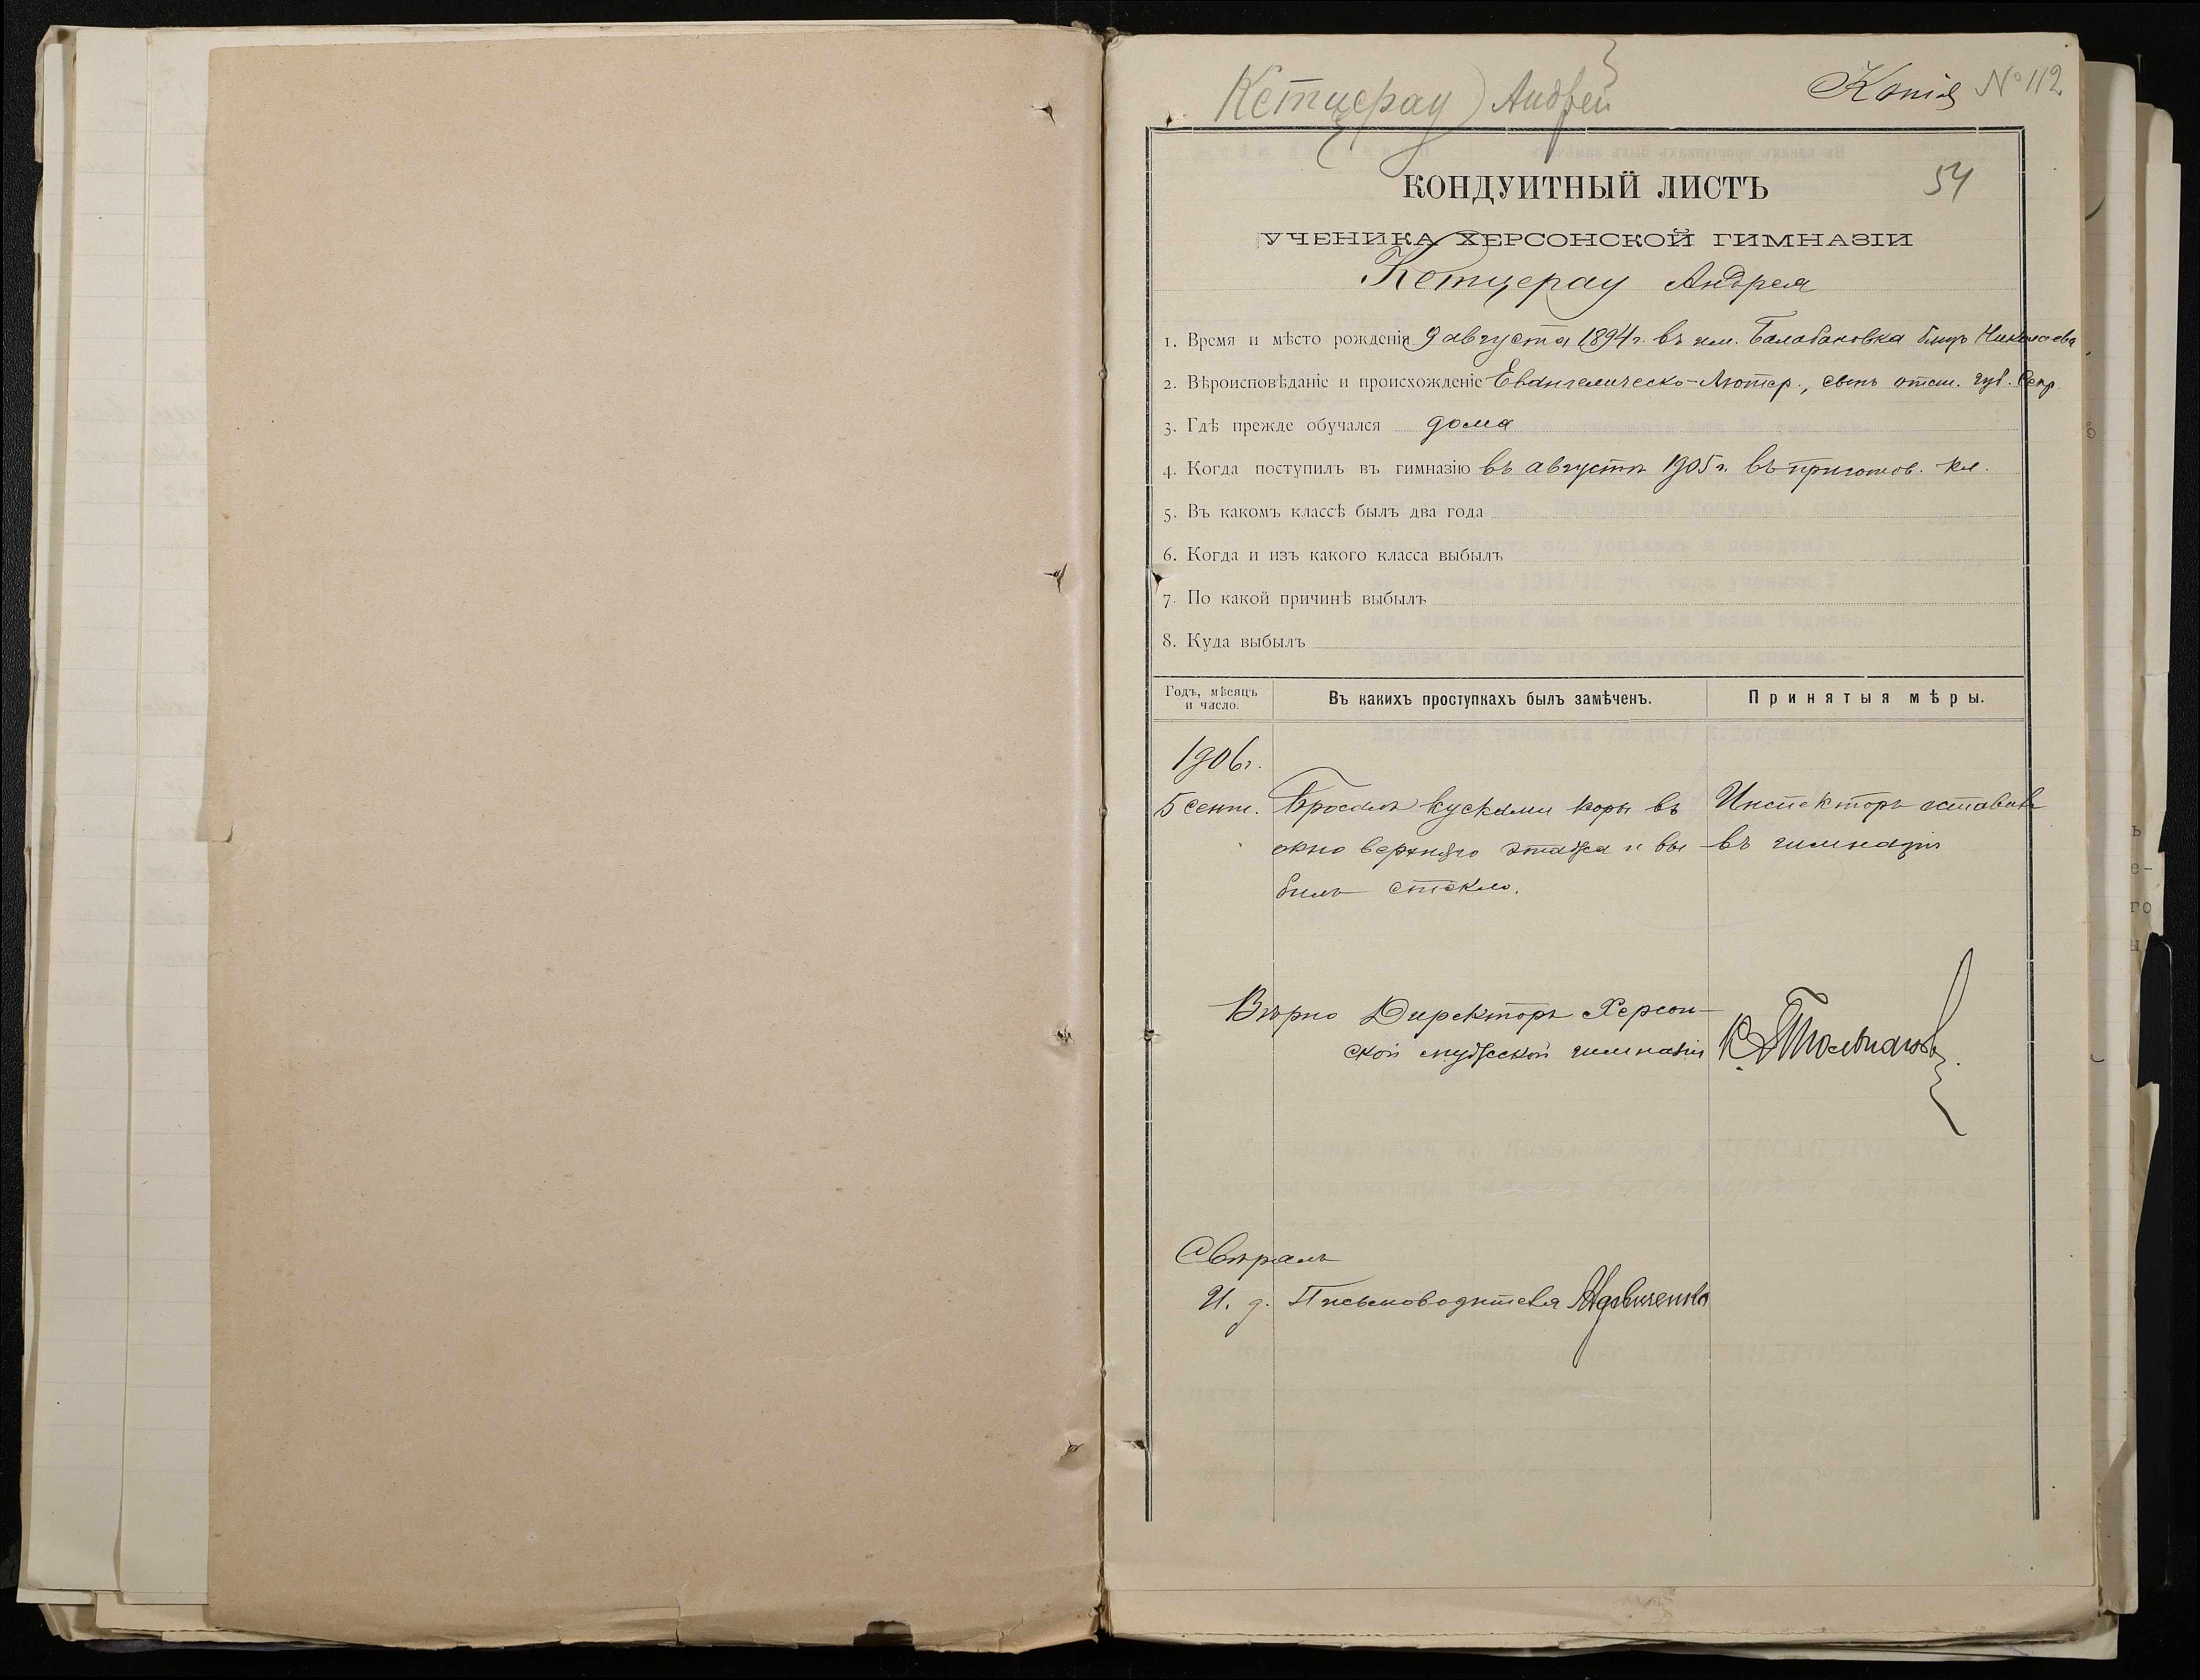 Кетцерау Андрей
Копія № 112
54
КОНДУИТНЫЙ ЛИСТЪ
УЧЕНИКА ХЕРСОНСКОЙ ГИМНАЗІИ
Кетцерау Андрея
1. Время и мѣсто рожденія 9 августа 1894 г. въ им. Балабановка близъ Николаева
2. Вѣроисповѣданіе и происхожденіе Евангелическо-Лютер., сынъ отст. губ. секр.
3. Гдѣ прежде обучался дома
4. Когда поступилъ въ гимназію въ августѣ 1905 г. въ приготов. кл.
5. Въ какомъ классѣ былъ два года
6. Когда и изъ какого класса выбылъ
7. По какой причинѣ выбылъ
8. Куда выбылъ
Годъ, мѣсяцъ и число.
Въ какихъ проступкахъ былъ замѣченъ.
Принятыя мѣры.
1906 г.
5 сент. Бросалъ кусками коры въ
окно верхняго этажа и вы
билъ стекло.
Инспекторъ оставилъ
въ гимназіи
Вѣрно Директоръ Херсон-
ской мужской гимназіи
Свѣрялъ
И. д. Письмоводителя